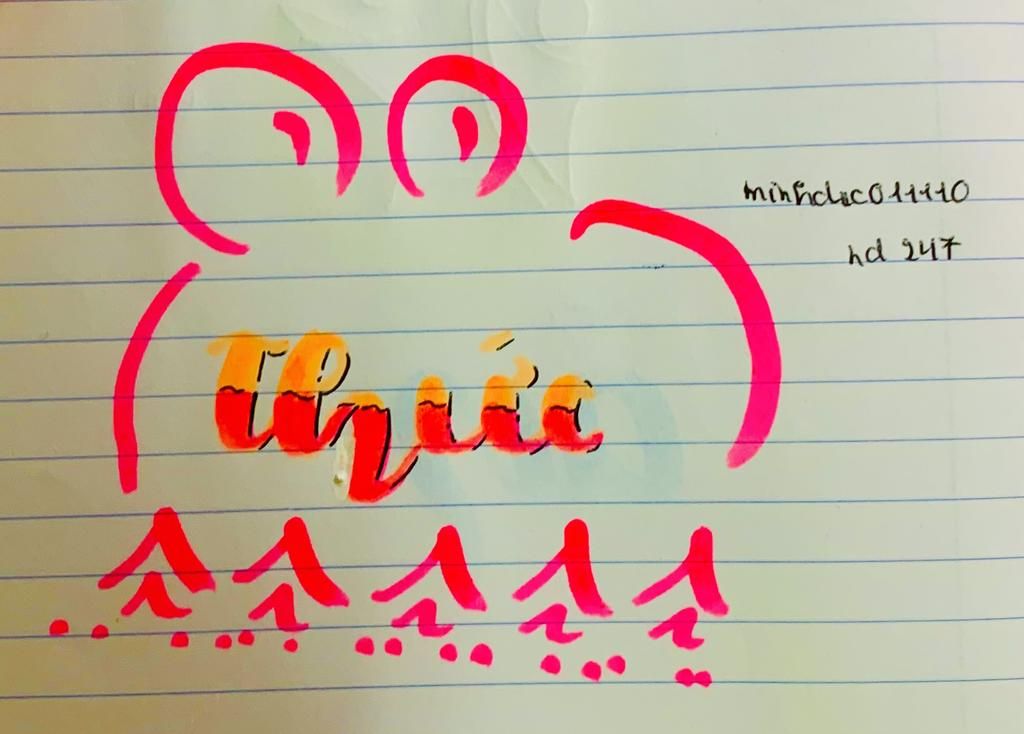 minhduc011110
hd 247
Thức